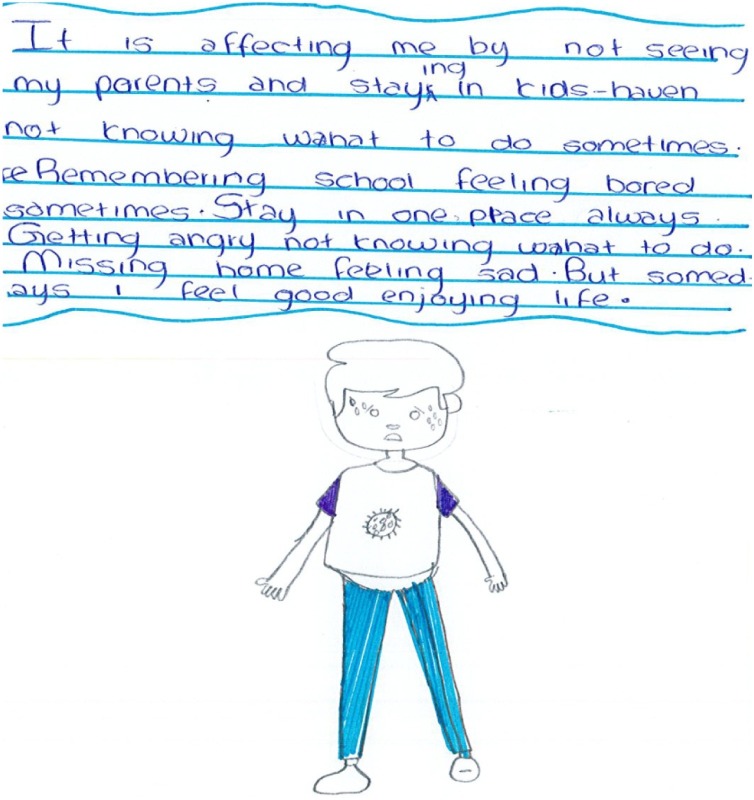 It is affecting me by not seeing
my parents and staying in kids-haven
not knowing wahat to do sometimes.
Remembering school feeling bored
sometimes. Stay in one place always.
Getting angry not knowing wahat to do.
Missing home feeling sad. But somed-
ays i feel good enjoying life.